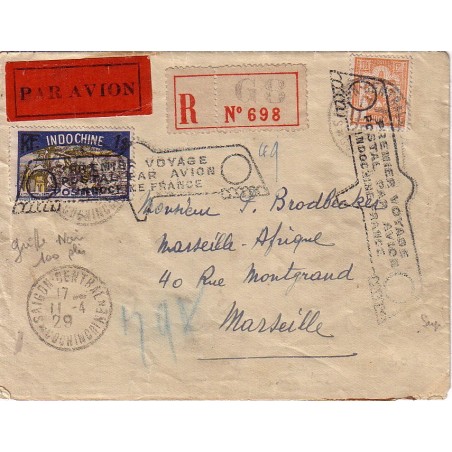 PAR AVION
R
GC
N° 698
RF INDOCHINE 1$
PREMIER VOYAGE
POSTAL PAR AVION
INDOCHINE FRANCE
PREMIER VOYAGE
POSTAL PAR AVION
INDOCHINE FRANCE
Monsieur F. Brodbecker
Marseille-Afrique
40 Rue Montgrand
Marseille
Griffe Noire
100 plis
SAIGON-CENTRAL
17
11-4
29
COCHINCHINE